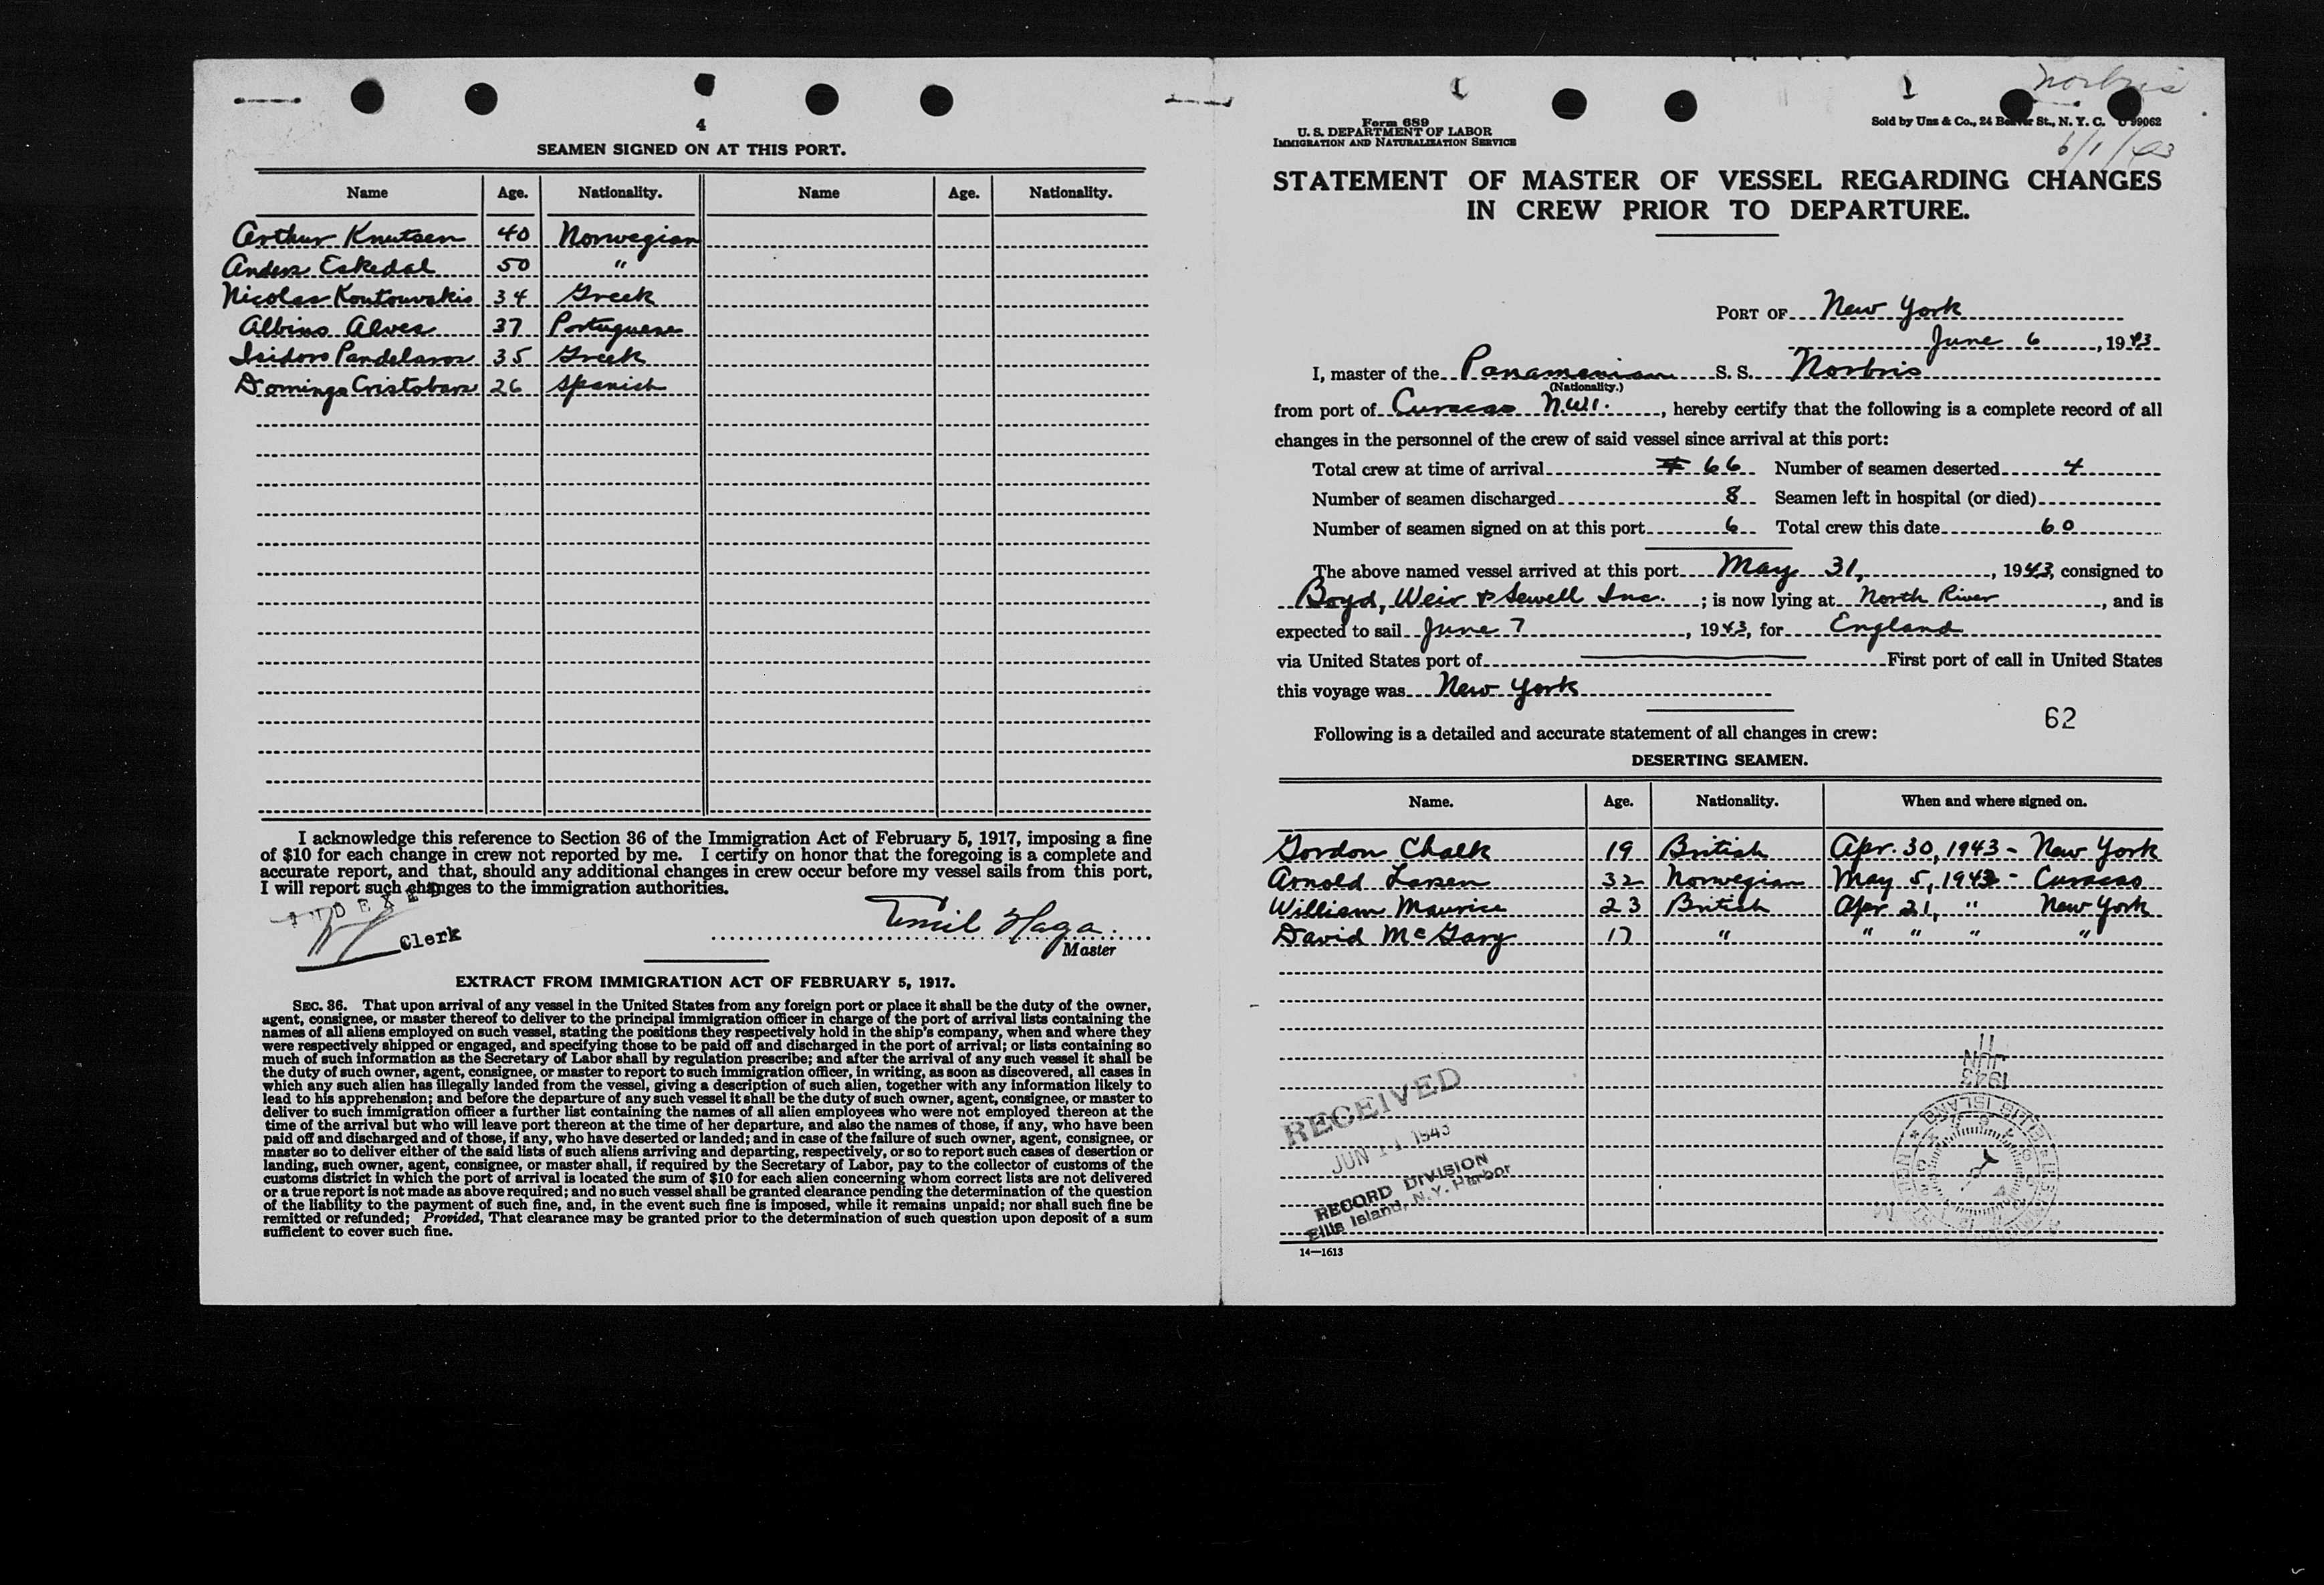 4
SEAMEN SIGNED ON AT THIS PORT.
Name Age. Nationality. Name Age. Nationality.
Arthur Knutsen 40 Norwegian
Anders Eskedal 50 "
Nicolas Koutouvakis 34 Greek
Albino Alves 37 Portuguese
Isidoro Pandelaros 35 Greek
Domingo Cristobars 26 Spanish
I acknowledge this reference to Section 36 of the Immigration Act of February 5, 1917, imposing a fine
of $10 for each change in crew not reported by me. I certify on honor that the foregoing is a complete and
accurate report, and that, should any additional changes in crew occur before my vessel sails from this port,
I will report such changes to the immigration authorities.
INDEXED
Clerk
Emil Haga.
Master
EXTRACT FROM IMMIGRATION ACT OF FEBRUARY 5, 1917.
SEC. 36. That upon arrival of any vessel in the United States from any foreign port or place it shall be the duty of the owner,
agent, consignee, or master thereof to deliver to the principal immigration officer in charge of the port of arrival lists containing the
names of all aliens employed on such vessel, stating the positions they respectively hold in the ship's company, when and where they
were respectively shipped or engaged, and specifying those to be paid off and discharged in the port of arrival; or lists containing so
much of such information as the Secretary of Labor shall by regulation prescribe; and after the arrival of any such vessel it shall be
the duty of such owner, agent, consignee, or master to report to such immigration officer, in writing, as soon as discovered, all cases in
which any such alien has illegally landed from the vessel, giving a description of such alien, together with any information likely to
lead to his apprehension; and before the departure of any such vessel it shall be the duty of such owner, agent, consignee, or master to
deliver to such immigration officer a further list containing the names of all alien employees who were not employed thereon at the
time of the arrival but who will leave port thereon at the time of her departure, and also the names of those, if any, who have been
paid off and discharged and of those, if any, who have deserted or landed; and in case of the failure of such owner, agent, consignee, or
master so to deliver either of the said lists of such aliens arriving and departing, respectively, or so to report such cases of desertion or
landing, such owner, agent, consignee, or master shall, if required by the Secretary of Labor, pay to the collector of customs of the
customs district in which the port of arrival is located the sum of $10 for each alien concerning whom correct lists are not delivered
or a true report is not made as above required; and no such vessel shall be granted clearance pending the determination of the question
of the liability to the payment of such fine, and, in the event such fine is imposed, while it remains unpaid; nor shall such fine be
remitted or refunded; Provided, That clearance may be granted prior to the determination of such question upon deposit of a sum
sufficient to cover such fine.
Norbris
6/1/43
Form 689
U. S. DEPARTMENT OF LABOR
IMMIGRATION AND NATURALIZATION SERVICE
Sold by Unz & Co., 24 Beaver St., N. Y. C. 99062
STATEMENT OF MASTER OF VESSEL REGARDING CHANGES
IN CREW PRIOR TO DEPARTURE.
PORT OF New York
June 6, 1943
I, master of the Panamanian S. S. Norbris
(Nationality.)
from port of Curacao N.W.I., hereby certify that the following is a complete record of all
changes in the personnel of the crew of said vessel since arrival at this port:
Total crew at time of arrival 66 Number of seamen deserted 4
Number of seamen discharged 8 Seamen left in hospital (or died)
Number of seamen signed on at this port 6 Total crew this date 60
The above named vessel arrived at this port May 31, , 1943, consigned to
Boyd, Weir & Sewell Inc. ; is now lying at North River, and is
expected to sail June 7, 1943, for England
via United States port of First port of call in United States
this voyage was New York
62
Following is a detailed and accurate statement of all changes in crew:
DESERTING SEAMEN.
Name. Age. Nationality. When and where signed on.
Gordon Chalk 19 British Apr. 30, 1943 - New York
Arnold Larsen 32 Norwegian May 5, 1943 - Curacao
William Maurice 23 British Apr 21, " New York
David McGary 17 " " " " "
1943
JUN
11
RECEIVED
JUN 11 1943
RECORD DIVISION
Ellis Island, N. Y. Harbor
14—1613